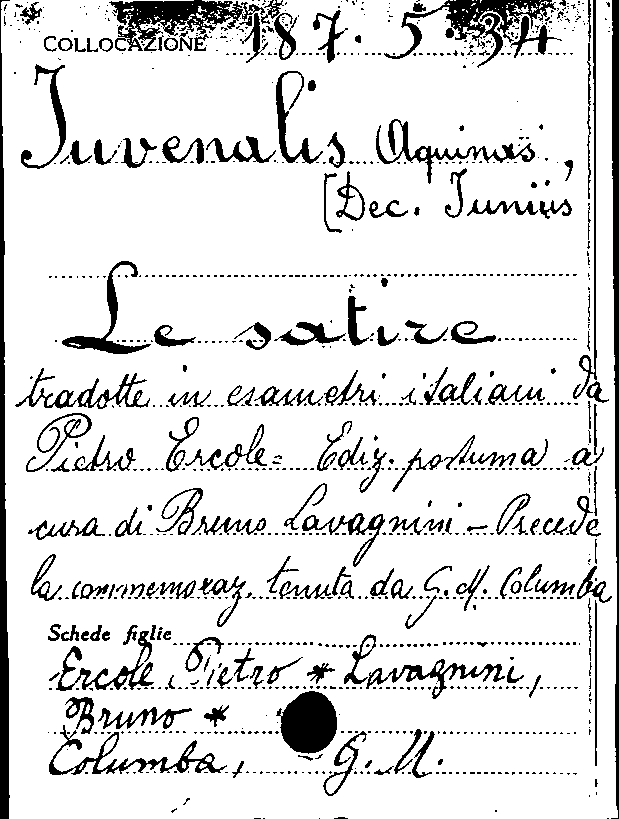 COLLOCAZIONE 187. 5. 34
Juvenalis Aquinas,
[Dec. Junius
Le satire
tradotte in esametri italiani da
Pietro Ercole= Ediz. postuma a
cura di Bruno Lavagnini - Precede
la commemoraz. tenuta da G. M. Columba
Schede figlie
Ercole Pietro * Lavagnini,
Bruno *
Columba, - G. M.